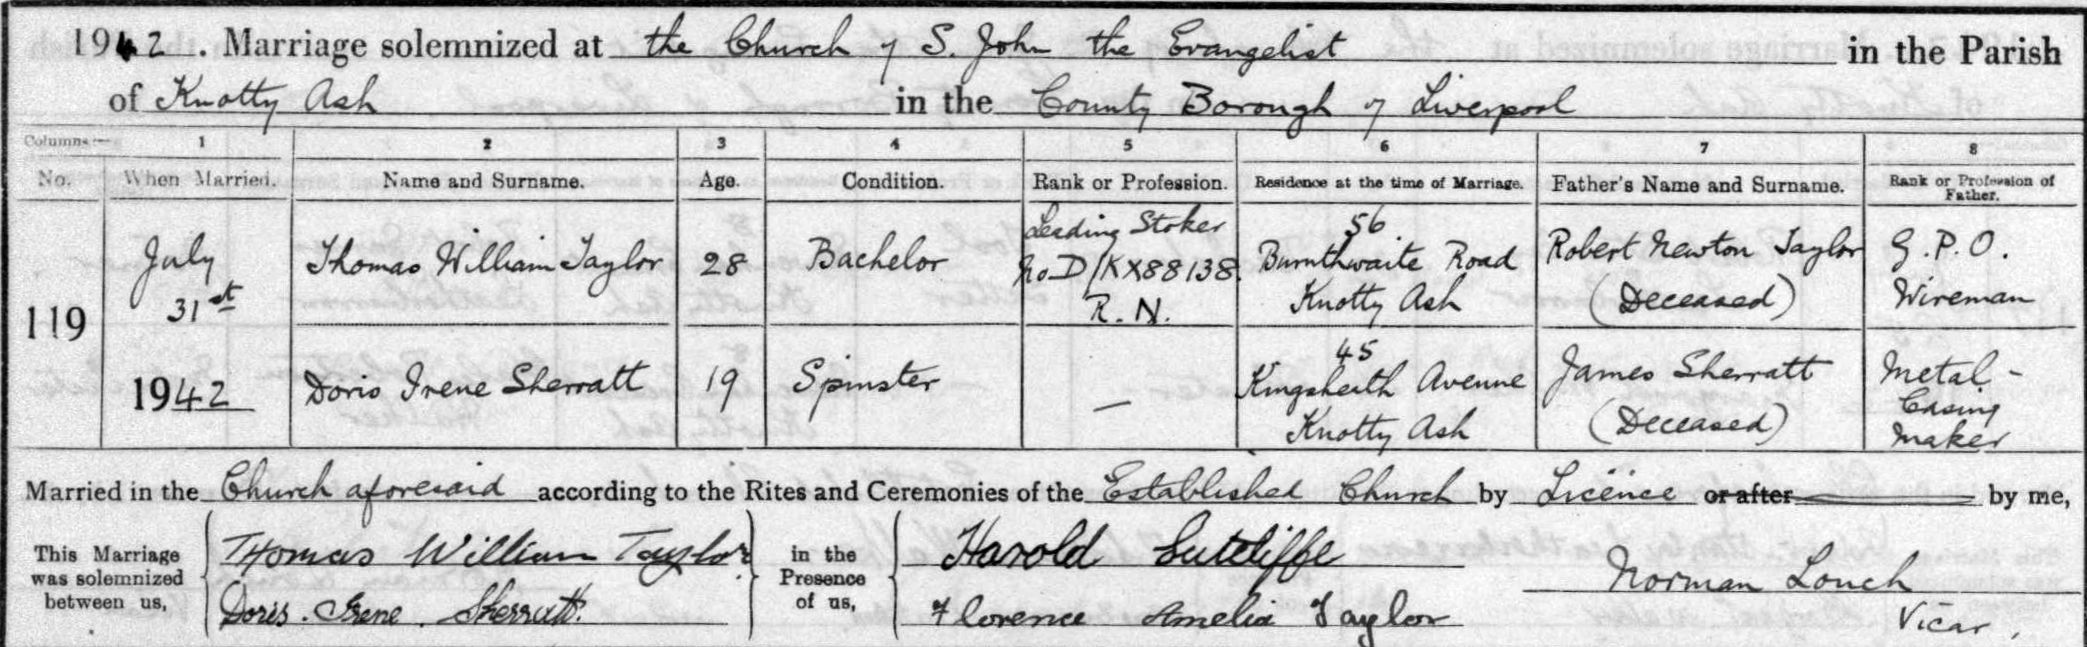 1942. Marriage solemnized at the Church of S. John the Evangelist in the Parish
of Knotty Ash in the County Borough of Liverpool
Columns:— 1 2 3 4 5 6 7 8
No. When Married. Name and Surname. Age. Condition. Rank or Profession. Residence at the time of Marriage. Father's Name and Surname. Rank or Profession of Father.
119
July
31st
1942
Thomas William Taylor
28
Bachelor
Leading Stoker
No D/KX88138.
R.N.
56
Burnthwaite Road
Knotty Ash
Robert Newton Taylor
(Deceased)
G.P.O.
Wireman
Doris Irene Sherratt
19
Spinster
—
45
Kingsheath Avenue
Knotty Ash
James Sherratt
(Deceased)
Metal-
Casing
Maker
Married in the Church aforesaid according to the Rites and Ceremonies of the Established Church by Licence or after by me,
This Marriage
was solemnized
between us,
Thomas William Taylor
Doris. Irene. Sherratt.
in the
Presence
of us,
Harold Sutcliffe
Florence Amelia Taylor
Norman Louch
Vicar,